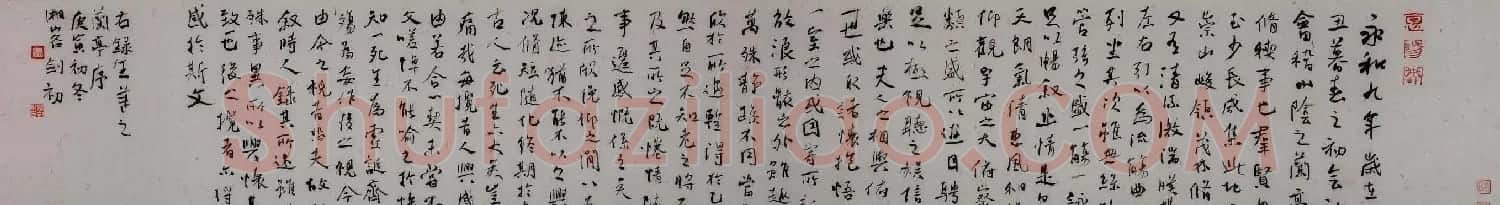 永和九年歲在
丑暮春之初會
會稽山陰之蘭亭
脩稧事也羣賢
至少長咸集此地
崇山峻領茂林脩
又有清流激湍暎
左右引以為流觴曲
列坐其次雖無絲
管弦之盛一觴一詠
足以暢敘幽情是日
天朗氣清惠風和
仰觀宇宙之大俯察
類之盛所以遊目騁
足以極視聽之娛信
樂也夫人之相與俯
一世或取諸懷抱悟
一室之內或因寄所
於浪形骸之外雖趣
萬殊靜躁不同當
欣於所遇暫得於己
然自足不知老之將
及其所之既惓情隨
事遷感慨係之矣
之所欣俛仰之間以
陳迹猶不能不以之興
況脩短隨化終期於
古人云死生亦大矣豈
痛哉每攬昔人興感
由若合一契未嘗
文嗟悼不能喻之於
知一死生為虛誕齊
殤為妄作後之視今
由今之視昔悲夫故
敘時人錄其所述雖
殊事異所以興懷
致一也後之攬者亦
感於斯文
右錄王羲之
蘭亭序
庚寅初冬
湘客劍初
Shufaziliao.COM